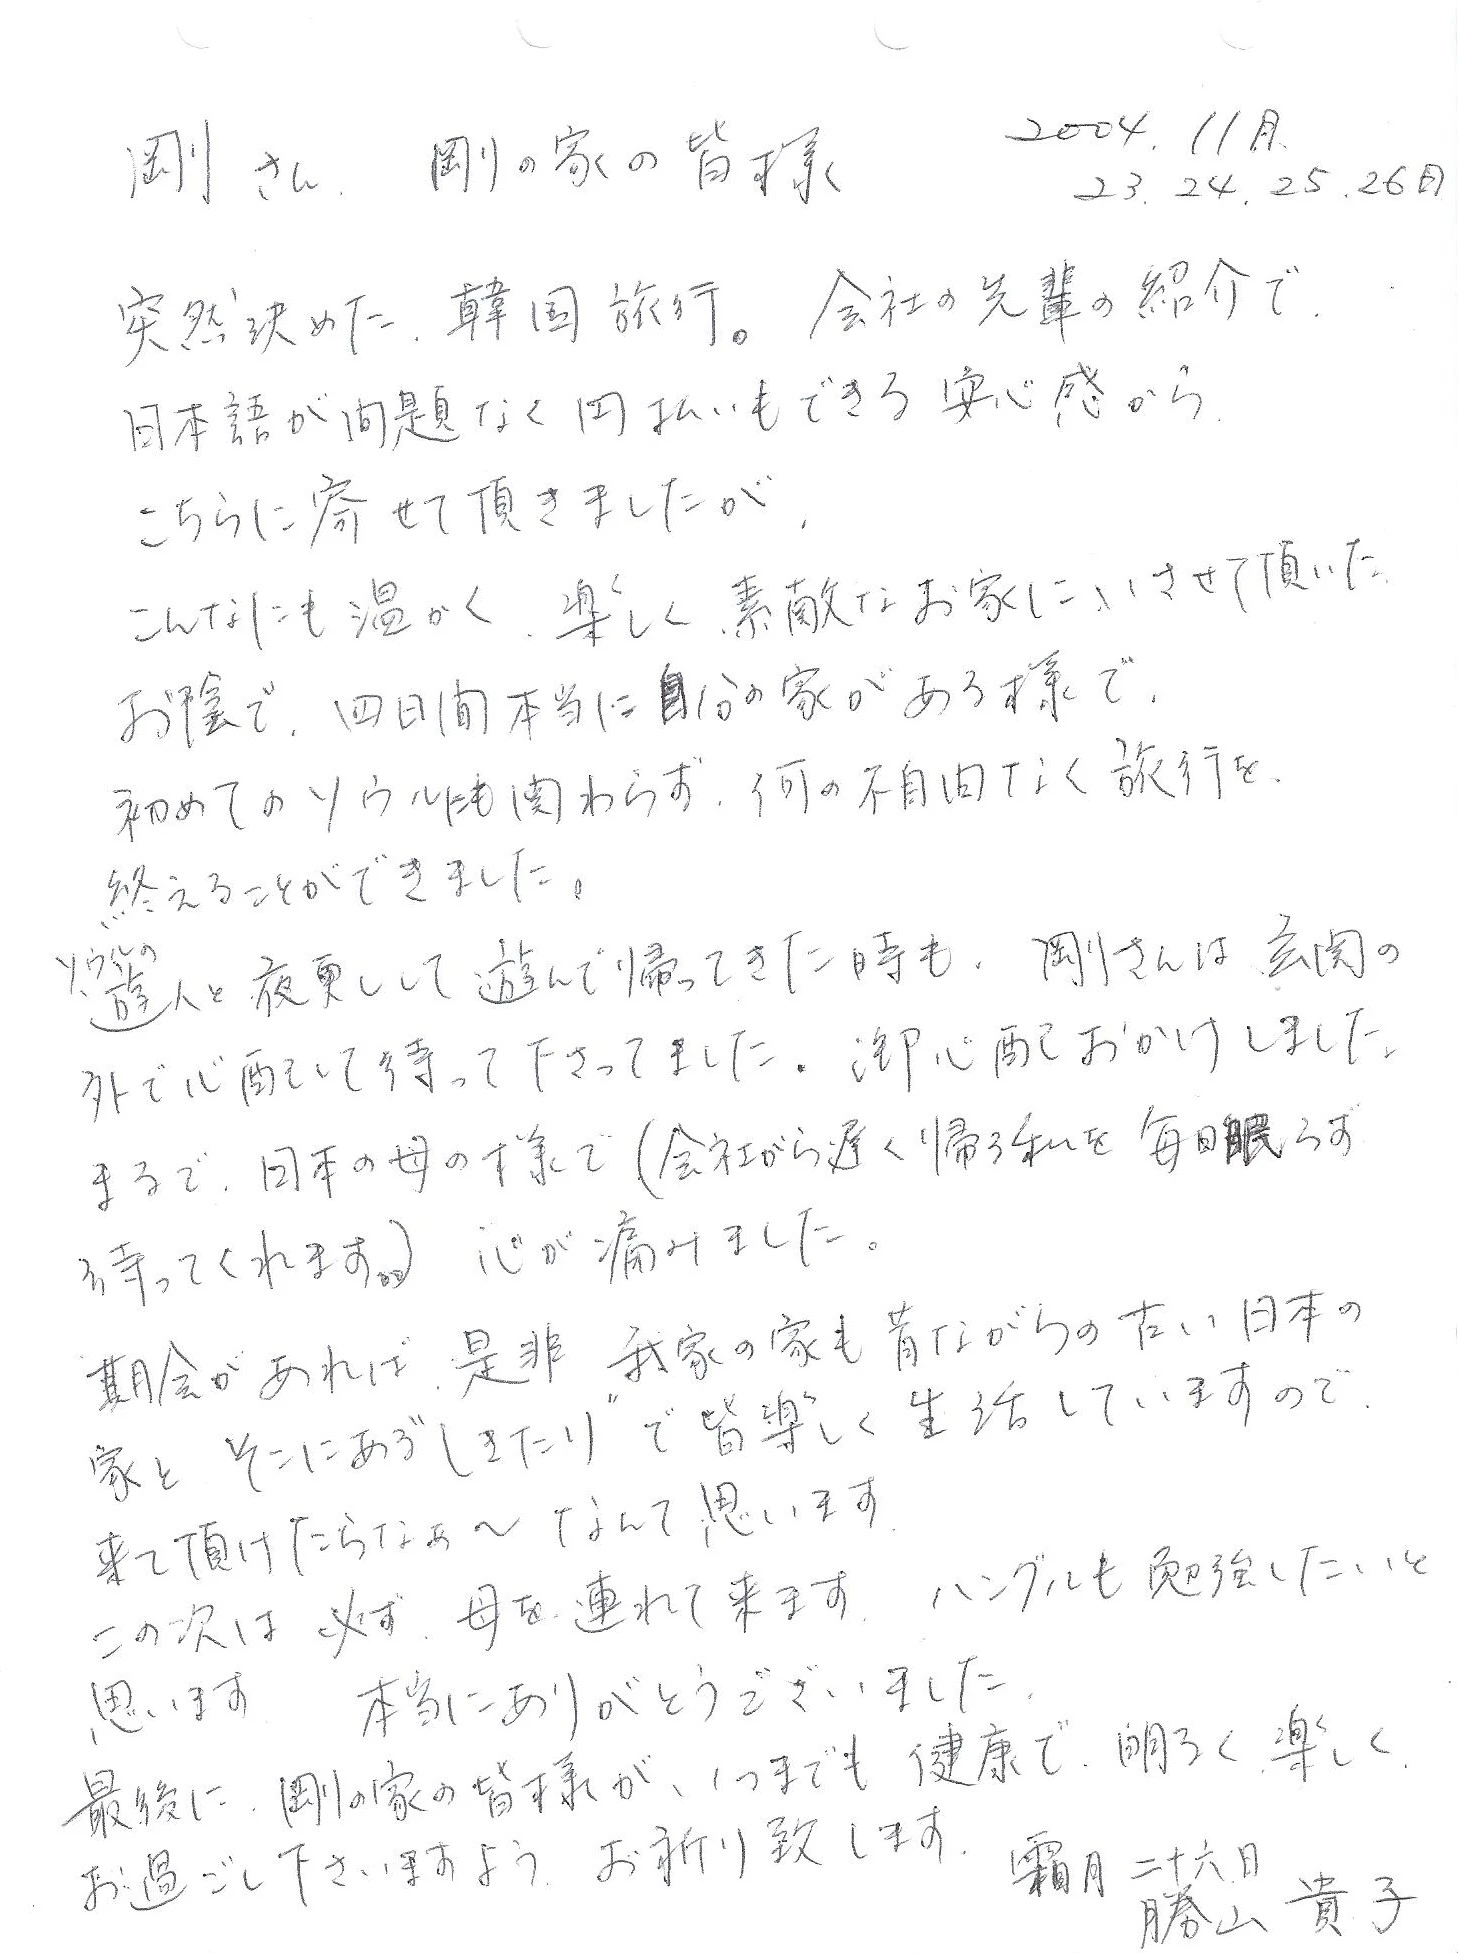 2004. 11月.
23. 24. 25. 26日
剛さん. 剛の家の皆様
突然決めた. 韓国旅行。 会社の先輩の紹介で.
日本語が問題なく円払いもできる安心感から.
こちらに寄せて頂きましたが.
こんなにも温かく. 楽しく. 素敵なお家にいさせて頂いた.
お陰で. 四日間本当に自分の家がある様で.
初めてのソウルにも関わらず. 何の不自由なく旅行を.
終えることができました。
ソウルの
人と夜更しして遊んで帰ってきた時も. 剛さんは玄関の
外で心配して待って下さってました. 御心配おかけしました.
まるで. 日本の母の様で(会社から遅く帰る私を毎日眠らず
待ってくれます。) 心が痛みました。
期会があれば. 是非 我家の家も昔ながらの古い日本の
家と そこにある"しきたり"で皆楽しく生活していますので.
来て頂けたらなぁ〜なんて思います.
この次は必ず. 母を連れて来ます. ハングルも勉強したいと
思います 本当にありがとうございました.
最後に. 剛の家の皆様が、いつまでも健康で. 明るく. 楽しく.
お過ごし下さいますよう. お祈り致します.
霜月 二十六日
勝山 貴子